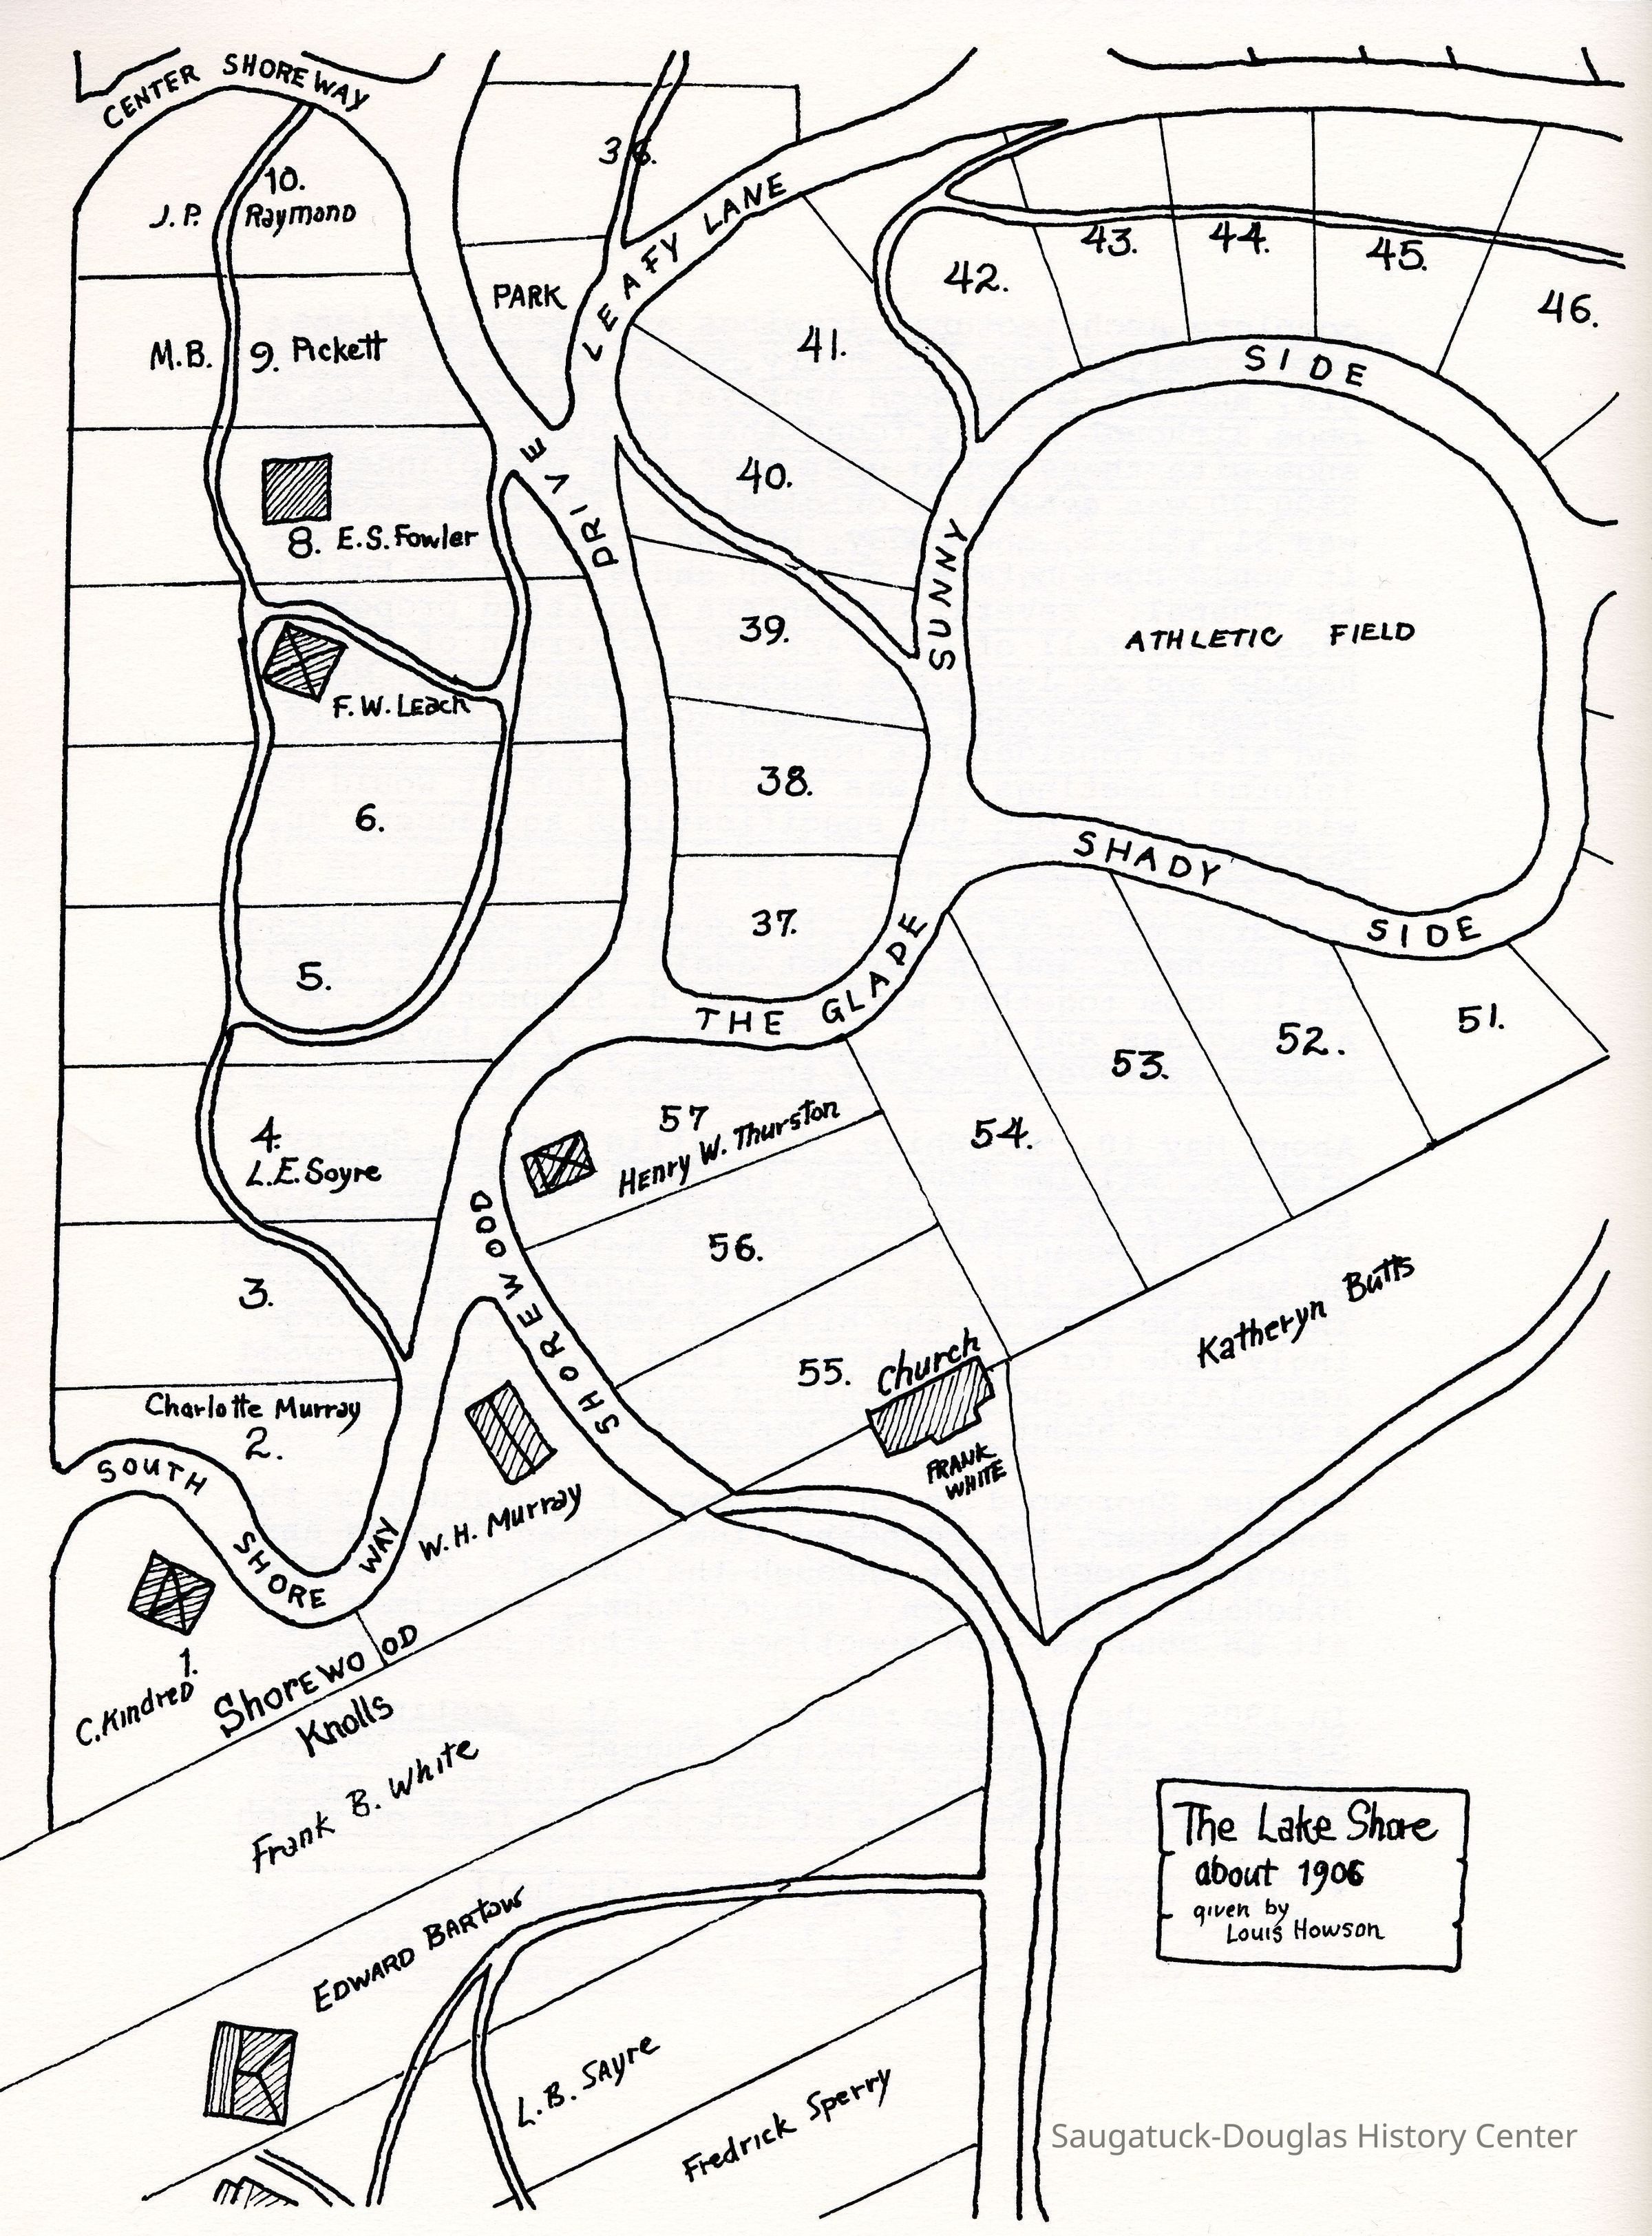 CENTER SHORE WAY
10.
J.P. Raymond
36.
LEAFY LANE
PARK
43.
44.
45.
42.
46.
41.
M.B. 9. Pickett
SUNNY SIDE
40.
DRIVE
8. E.S. Fowler
39.
ATHLETIC FIELD
F.W. Leach
38.
6.
SHADY SIDE
37.
5.
THE GLADE
51.
52.
53.
57
Henry W. Thurston
54.
4.
L.E. Soyre
56.
SHOREWOOD
3.
Katheryn Butts
55. Church
Charlotte Murray
2.
FRANK
WHITE
SOUTH SHORE WAY
W.H. Murray
1.
C. Kindred
Shorewood
Knolls
Frank B. White
The Lake Shore
about 1906
given by
Louis Howson
Edward Bartow
L.B. Sayre
Fredrick Sperry
Saugatuck-Douglas History Center